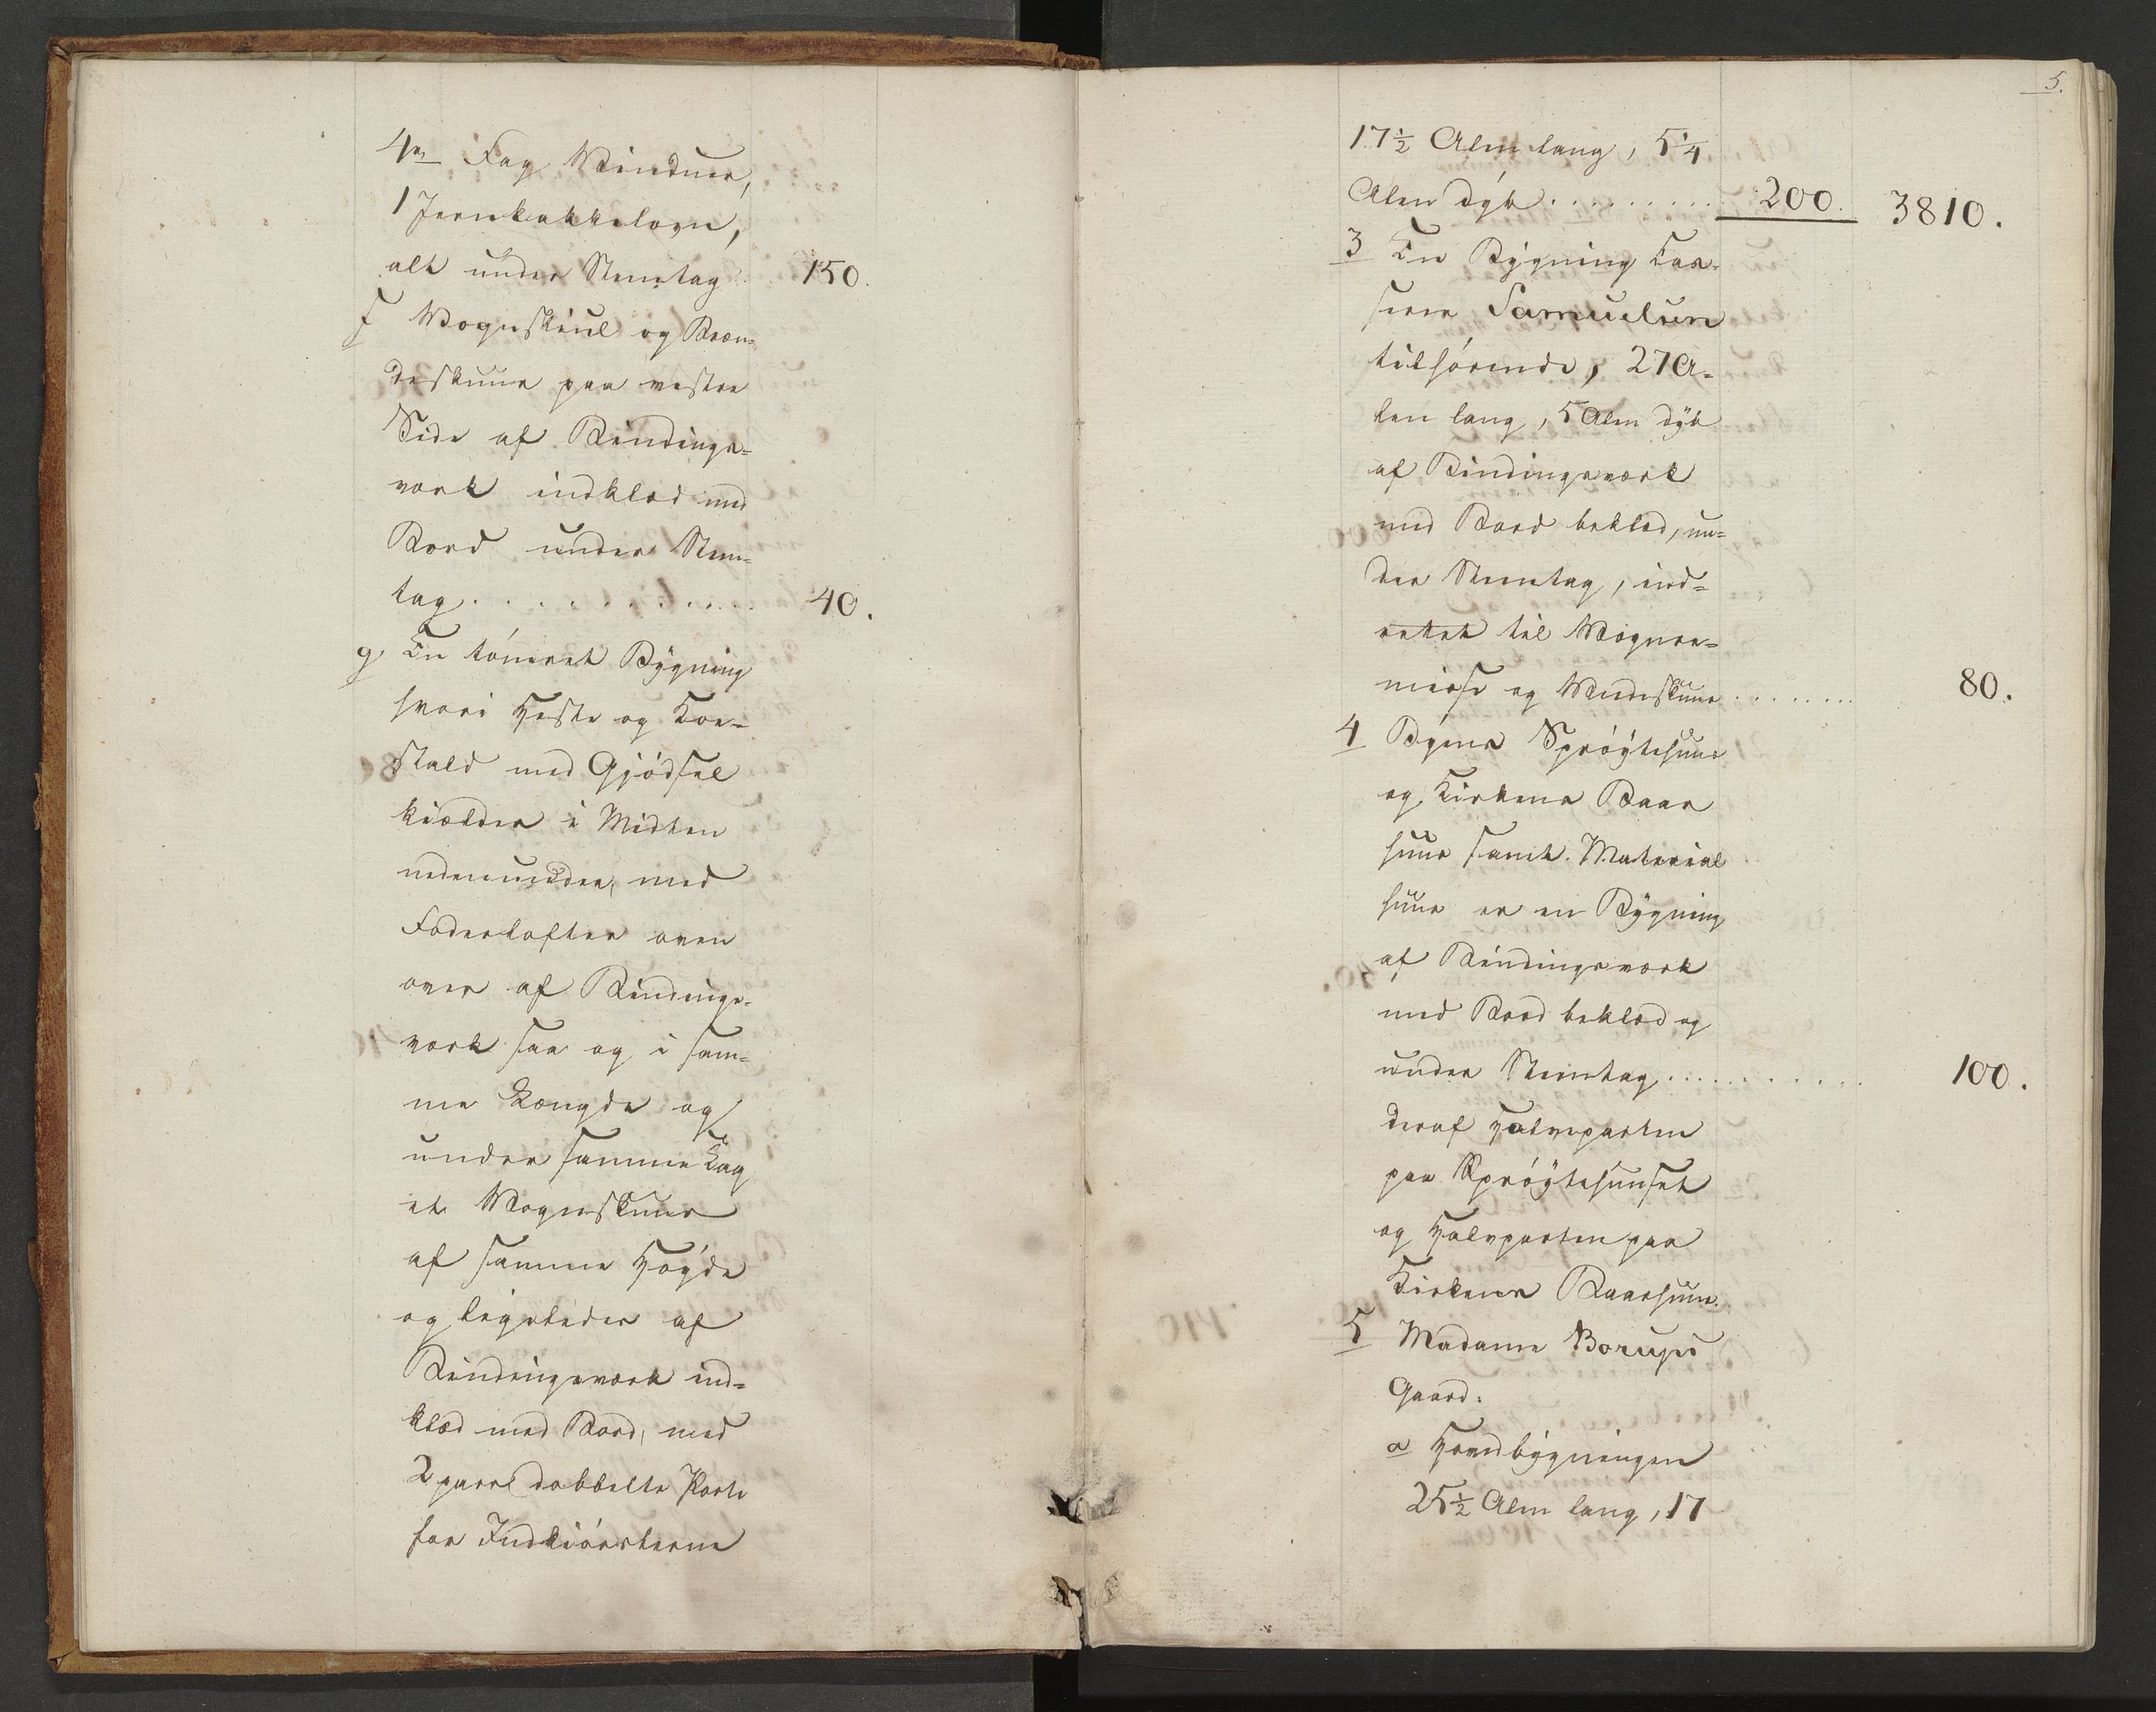 4re Fag Vinduer,
1 Jernkakkelovn,
alt under Steentag 150.
f Vognskiul og Bræn-
deskuur paa vestre
Side af Bindings-
værk indklæd med
Bord under Steen-
tag . . . . . . . . . . . . 40.
g En tömret Bÿgning
hvori Heste og Koe-
stald med Gjödsel
kielder i Midten
nedenunder, med
Foderlofter oven
over af Bindings-
værk saa og i sam-
me Længde og
under samme Tag
et Vognskuur
af samme Höÿde
og ligeledes af
Bindingsværk ind-
klæd med Bord, med
2 parre dobbelte Porte
for Indkiörslerne
5.
17½ Alen lang, 5¼
Alen dÿb . . . . . . . . . 200. 3810.
3 En Bÿgning Cas-
serer Samuelsen
tilhörende, 27 A-
len lang, 5 Alen dÿb
af Bindingsværk
med Bord beklæd, un-
der Steentag, ind-
rettet til Vognre-
miose og Vedeskuur . . . . . . . . 80.
4 Bÿens Spröÿtehuus
og Kirkens Baar
huus samt Material
huus er en Bÿgning
af Bindingsværk
med Bord beklæd og
under Steentag . . . . . . . . . . . 100.
deraf Halvparten
paa Spröÿtehuuset
og Halvparten paa
Kirkens Baarhuus.
5 Madame Borups
Gaard:
a Hovedbÿgningen
25½ Alen lang, 17